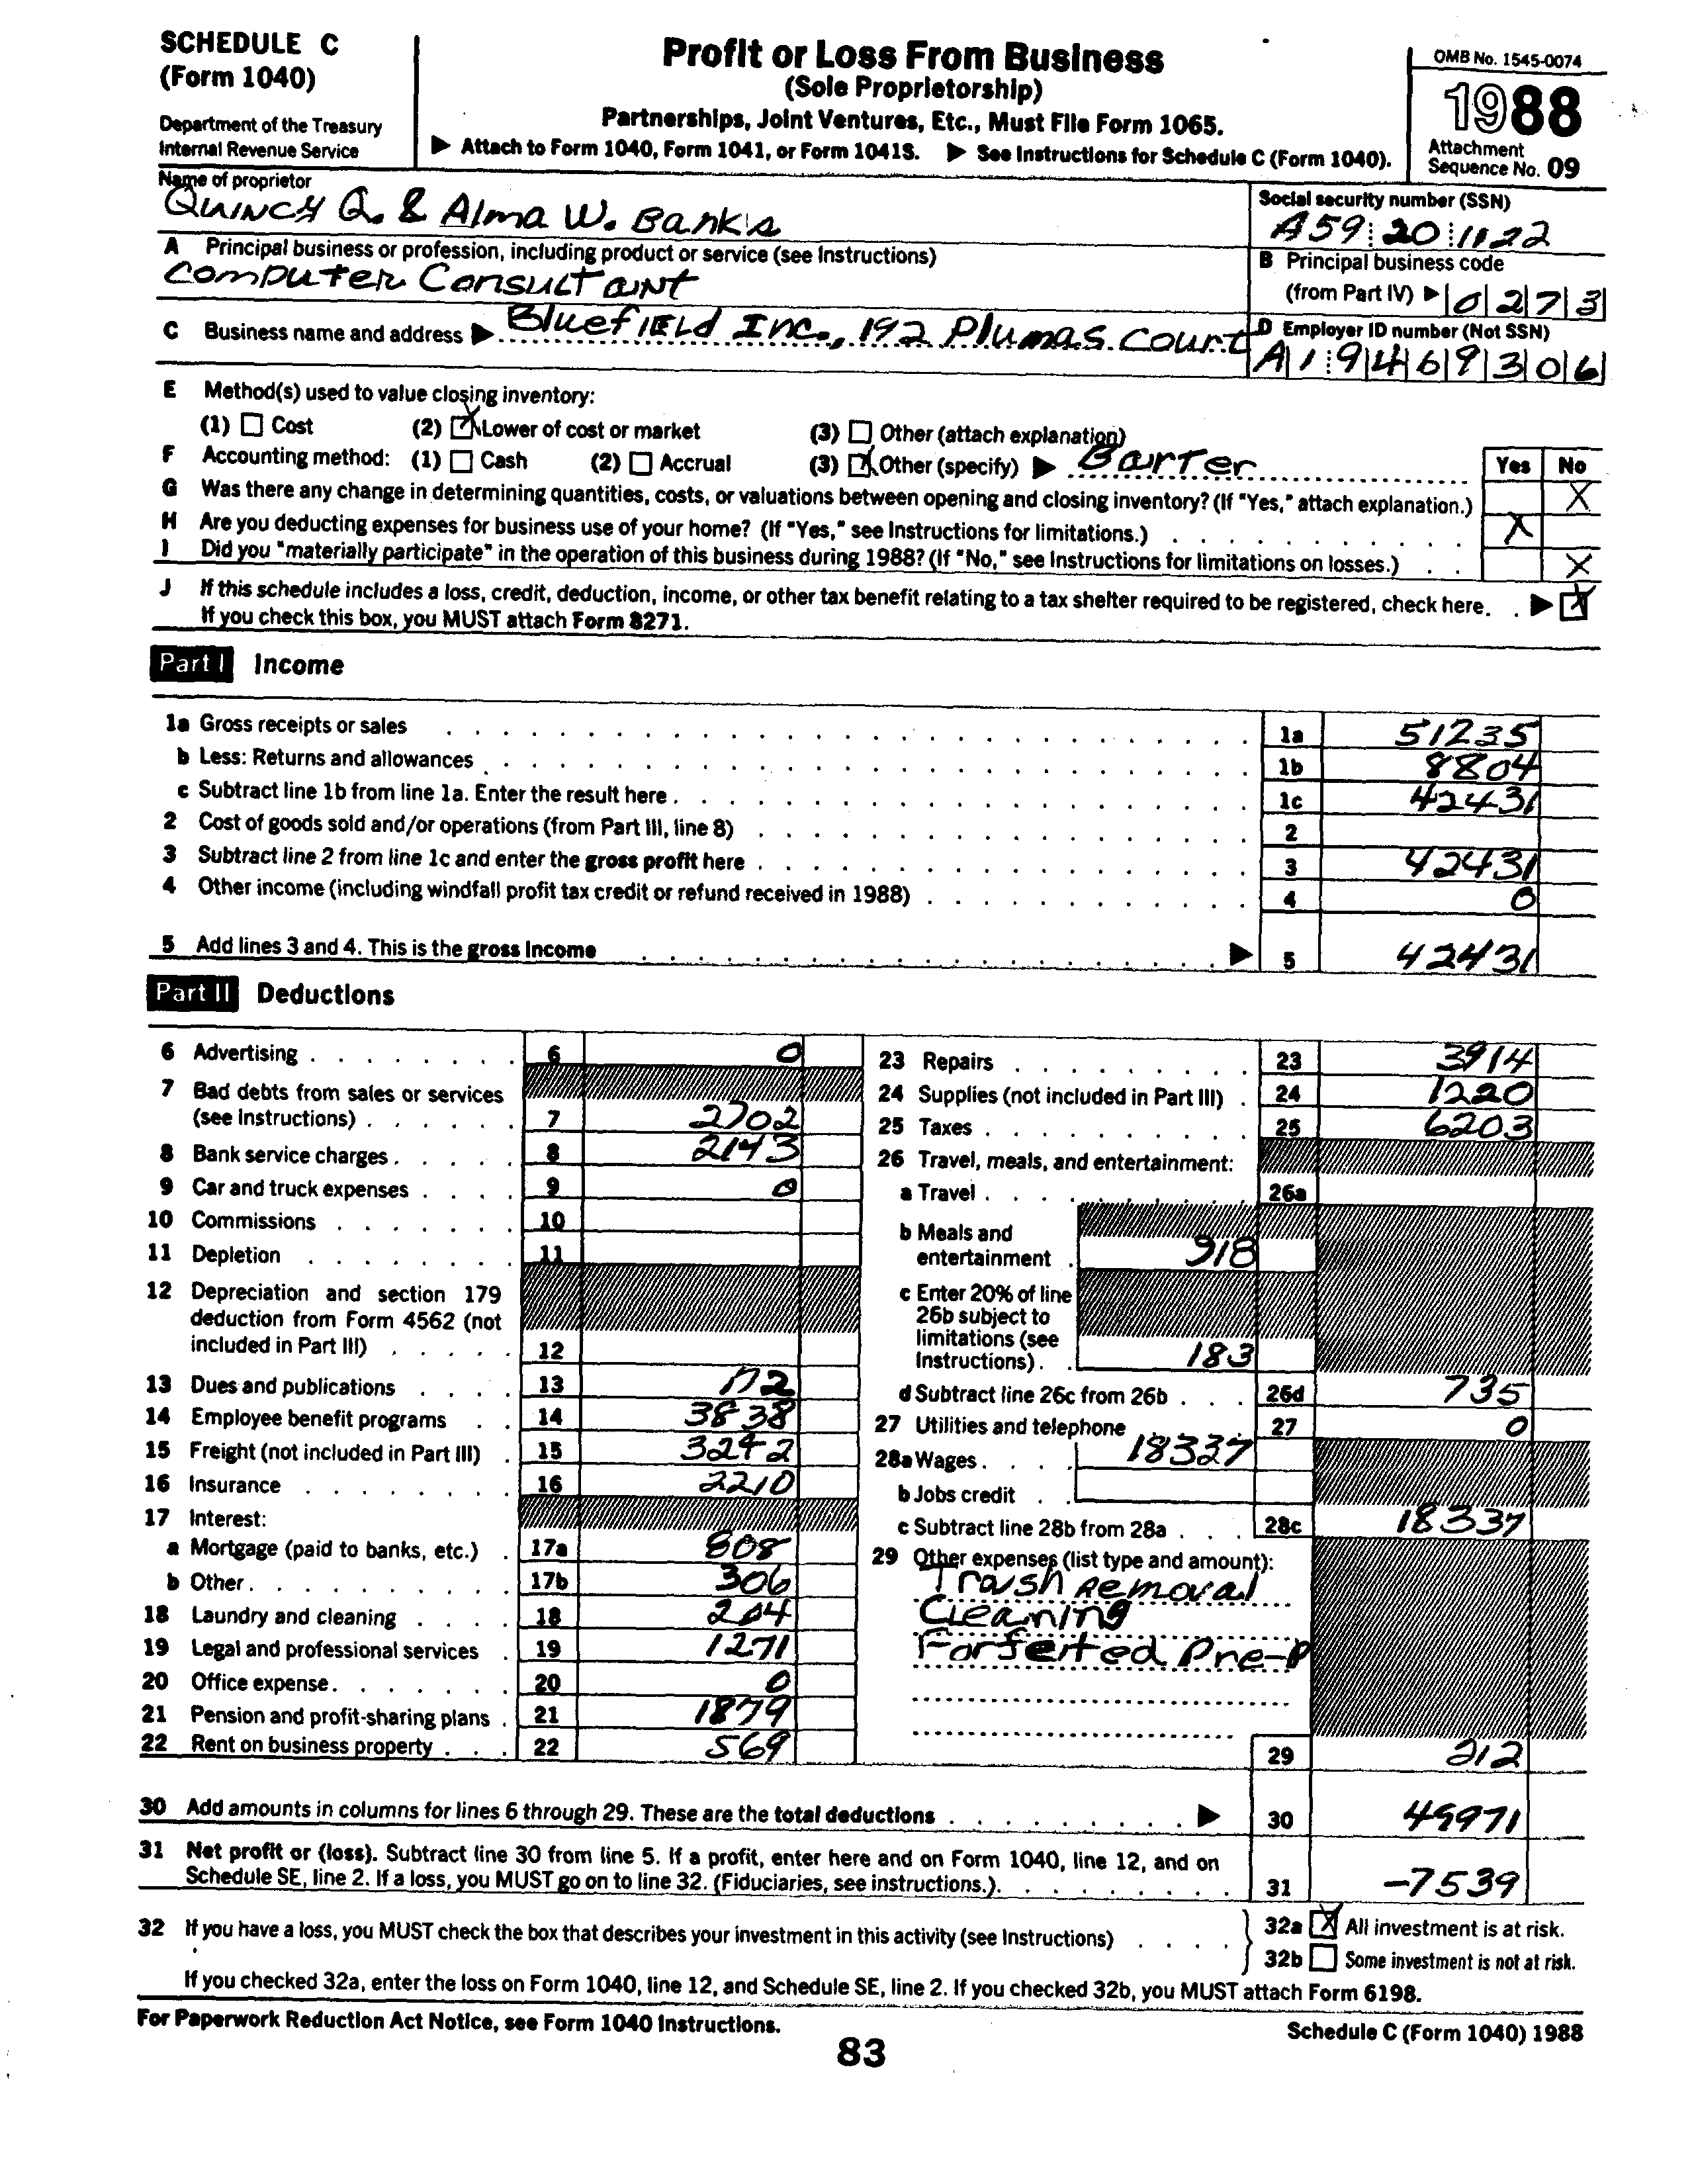 SCHEDULE C
(Form 1040)
Department of the Treasury
Internal Revenue Service
Profit or Loss From Business
(Sole Proprietorship)
Partnerships, Joint Ventures, Etc., Must File Form 1065.
▶ Attach to Form 1040, Form 1041, or Form 1041S. ▶ See Instructions for Schedule C (Form 1040).
OMB No. 1545-0074
1988
Attachment
Sequence No. 09
Name of proprietor
Quincy Q. & Alma W. Banks
Social security number (SSN)
A59 20 1122
A Principal business or profession, including product or service (see Instructions)
Computer Consultant
B Principal business code
(from Part IV) ▶ 0273
C Business name and address ▶ Bluefield Inc., 192 Plumas Court
D Employer ID number (Not SSN)
A1 9469306
E Method(s) used to value closing inventory:
(1) ☐ Cost (2) ☒ Lower of cost or market (3) ☐ Other (attach explanation)
F Accounting method: (1) ☐ Cash (2) ☐ Accrual (3) ☒ Other (specify) ▶ Barter
Yes No
G Was there any change in determining quantities, costs, or valuations between opening and closing inventory? (If "Yes," attach explanation.) X
H Are you deducting expenses for business use of your home? (If "Yes," see Instructions for limitations.) X
I Did you "materially participate" in the operation of this business during 1988? (If "No," see Instructions for limitations on losses.) X
J If this schedule includes a loss, credit, deduction, income, or other tax benefit relating to a tax shelter required to be registered, check here. ▶ ☒
If you check this box, you MUST attach Form 8271.
Part I Income
1a Gross receipts or sales 1a 51235
b Less: Returns and allowances 1b 8804
c Subtract line 1b from line 1a. Enter the result here 1c 42431
2 Cost of goods sold and/or operations (from Part III, line 8) 2
3 Subtract line 2 from line 1c and enter the gross profit here 3 42431
4 Other income (including windfall profit tax credit or refund received in 1988) 4 0
5 Add lines 3 and 4. This is the gross income ▶ 5 42431
Part II Deductions
6 Advertising 6 0
7 Bad debts from sales or services
(see Instructions) 7 2702
8 Bank service charges 8 2143
9 Car and truck expenses 9 0
10 Commissions 10
11 Depletion 11
12 Depreciation and section 179
deduction from Form 4562 (not
included in Part III) 12
13 Dues and publications 13 172
14 Employee benefit programs 14 3838
15 Freight (not included in Part III) 15 3242
16 Insurance 16 2210
17 Interest:
a Mortgage (paid to banks, etc.) 17a 808
b Other 17b 306
18 Laundry and cleaning 18 204
19 Legal and professional services 19 1271
20 Office expense 20 0
21 Pension and profit-sharing plans 21 1879
22 Rent on business property 22 569
23 Repairs 23 3914
24 Supplies (not included in Part III) 24 1220
25 Taxes 25 6203
26 Travel, meals, and entertainment:
a Travel 26a
b Meals and
entertainment 918
c Enter 20% of line
26b subject to
limitations (see
Instructions) 183
d Subtract line 26c from 26b 26d 735
27 Utilities and telephone 27 0
28a Wages 18337
b Jobs credit
c Subtract line 28b from 28a 28c 18337
29 Other expenses (list type and amount):
Trash Removal
Cleaning
Forfeited Pre-P
29 212
30 Add amounts in columns for lines 6 through 29. These are the total deductions ▶ 30 49971
31 Net profit or (loss). Subtract line 30 from line 5. If a profit, enter here and on Form 1040, line 12, and on
Schedule SE, line 2. If a loss, you MUST go on to line 32. (Fiduciaries, see instructions.) 31 -7539
32 If you have a loss, you MUST check the box that describes your investment in this activity (see Instructions)
32a ☒ All investment is at risk.
32b ☐ Some investment is not at risk.
If you checked 32a, enter the loss on Form 1040, line 12, and Schedule SE, line 2. If you checked 32b, you MUST attach Form 6198.
For Paperwork Reduction Act Notice, see Form 1040 Instructions.
Schedule C (Form 1040) 1988
83